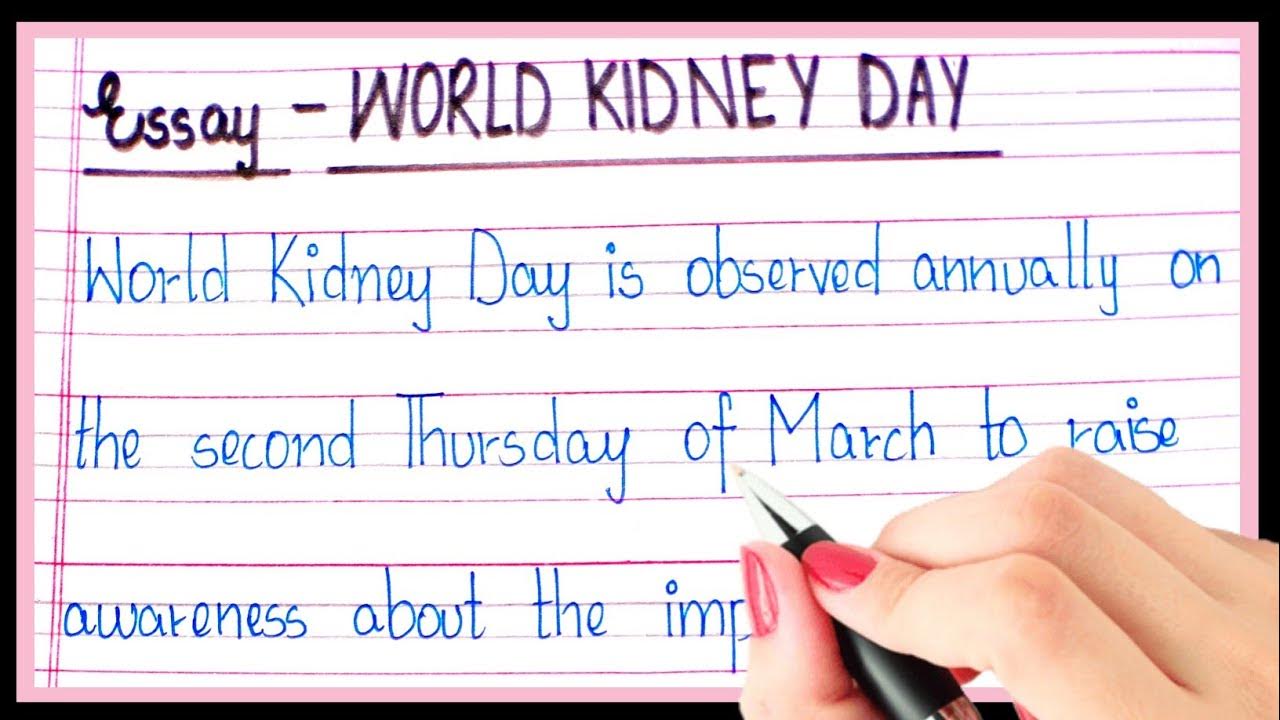 Essay - WORLD KIDNEY DAY
World Kidney Day is observed annually on
the second Thursday of March to raise
awareness about the